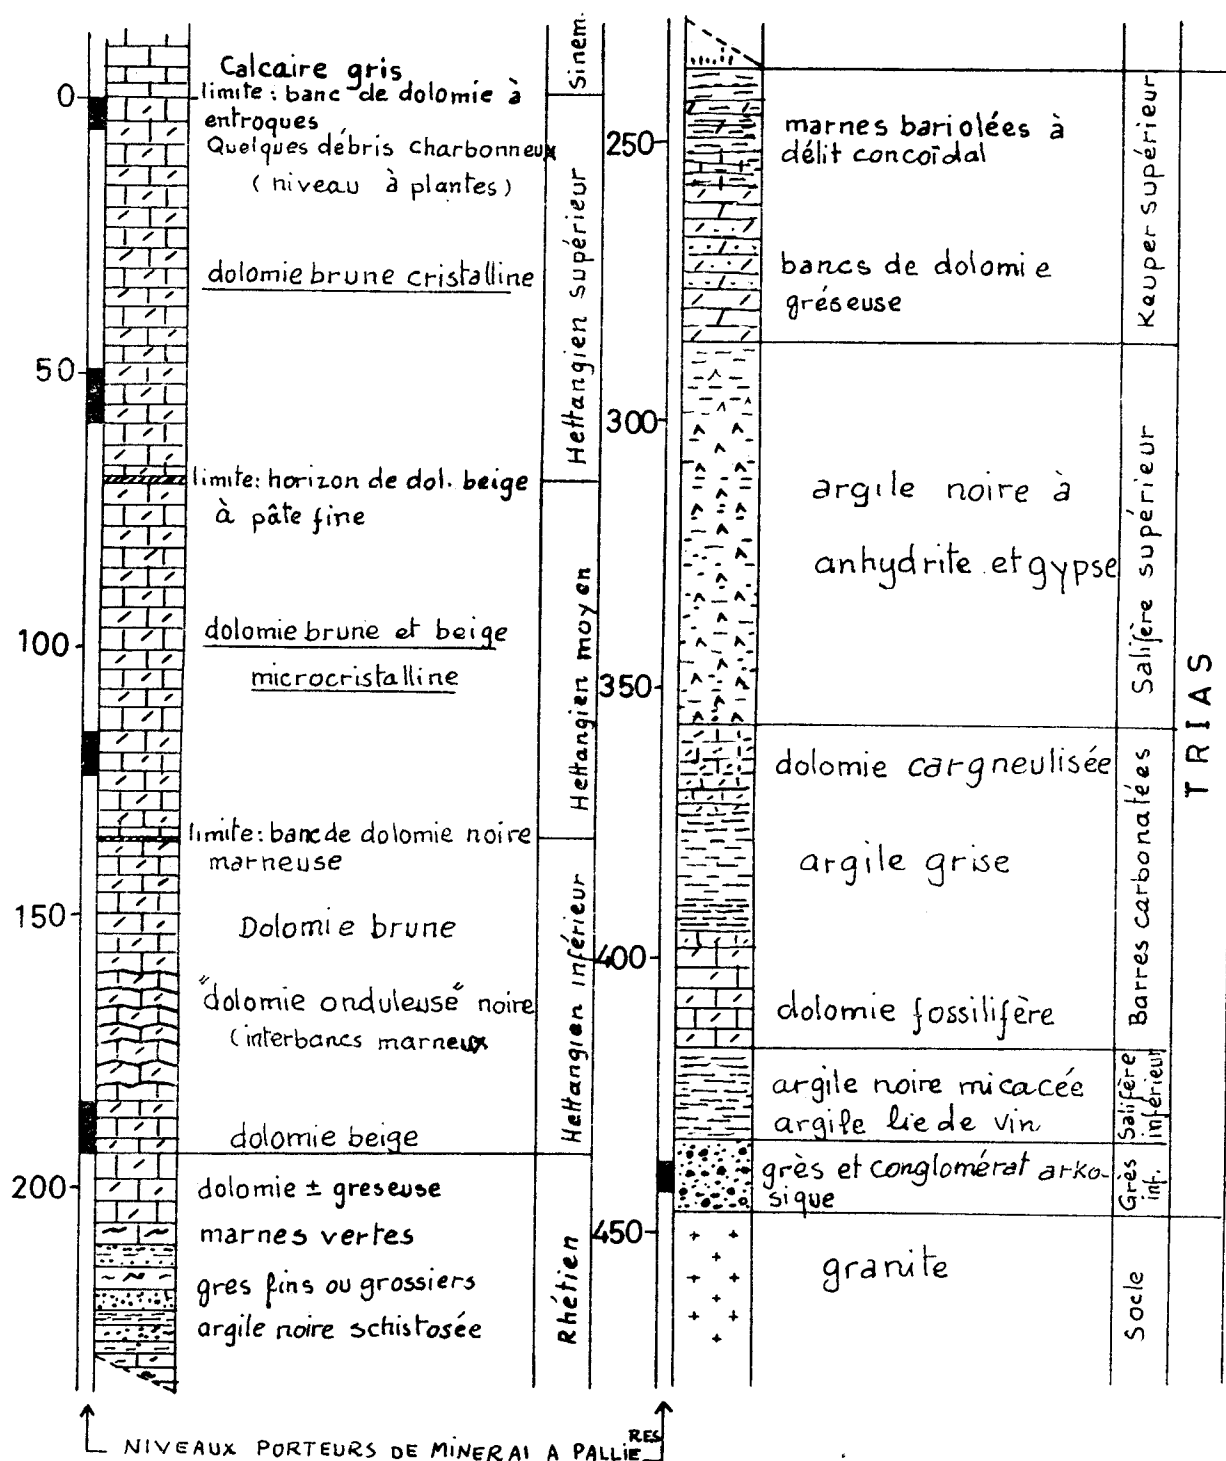 Calcaire gris
limite: banc de dolomie à
entroques
Quelques débris charbonneux
(niveau à plantes)
dolomie brune cristalline
limite: horizon de dol. beige
à pâte fine
dolomie brune et beige
microcristalline
limite: banc de dolomie noire
marneuse
Dolomie brune
"dolomie onduleuse" noire
(interbancs marneux
dolomie beige
dolomie ± greseuse
marnes vertes
gres fins ou grossiers
argile noire schistosée
0
50
100
150
200
Sinem.
Hettangien supérieur
Hettangien moyen
Hettangien inférieur
Rhétien
250
300
350
400
450
marnes bariolées à
délit concoïdal
bancs de dolomie
gréseuse
argile noire à
anhydrite et gypse
dolomie cargneulisée
argile grise
dolomie fossilifère
argile noire micacée
argile lie de vin
grès et conglomérat arko-
sique
granite
Keuper supérieur
Salifère supérieur
Barres carbonatées
Salifère
inférieur
Grès
inf.
Socle
TRIAS
NIVEAUX PORTEURS DE MINERAI A PALLIERES